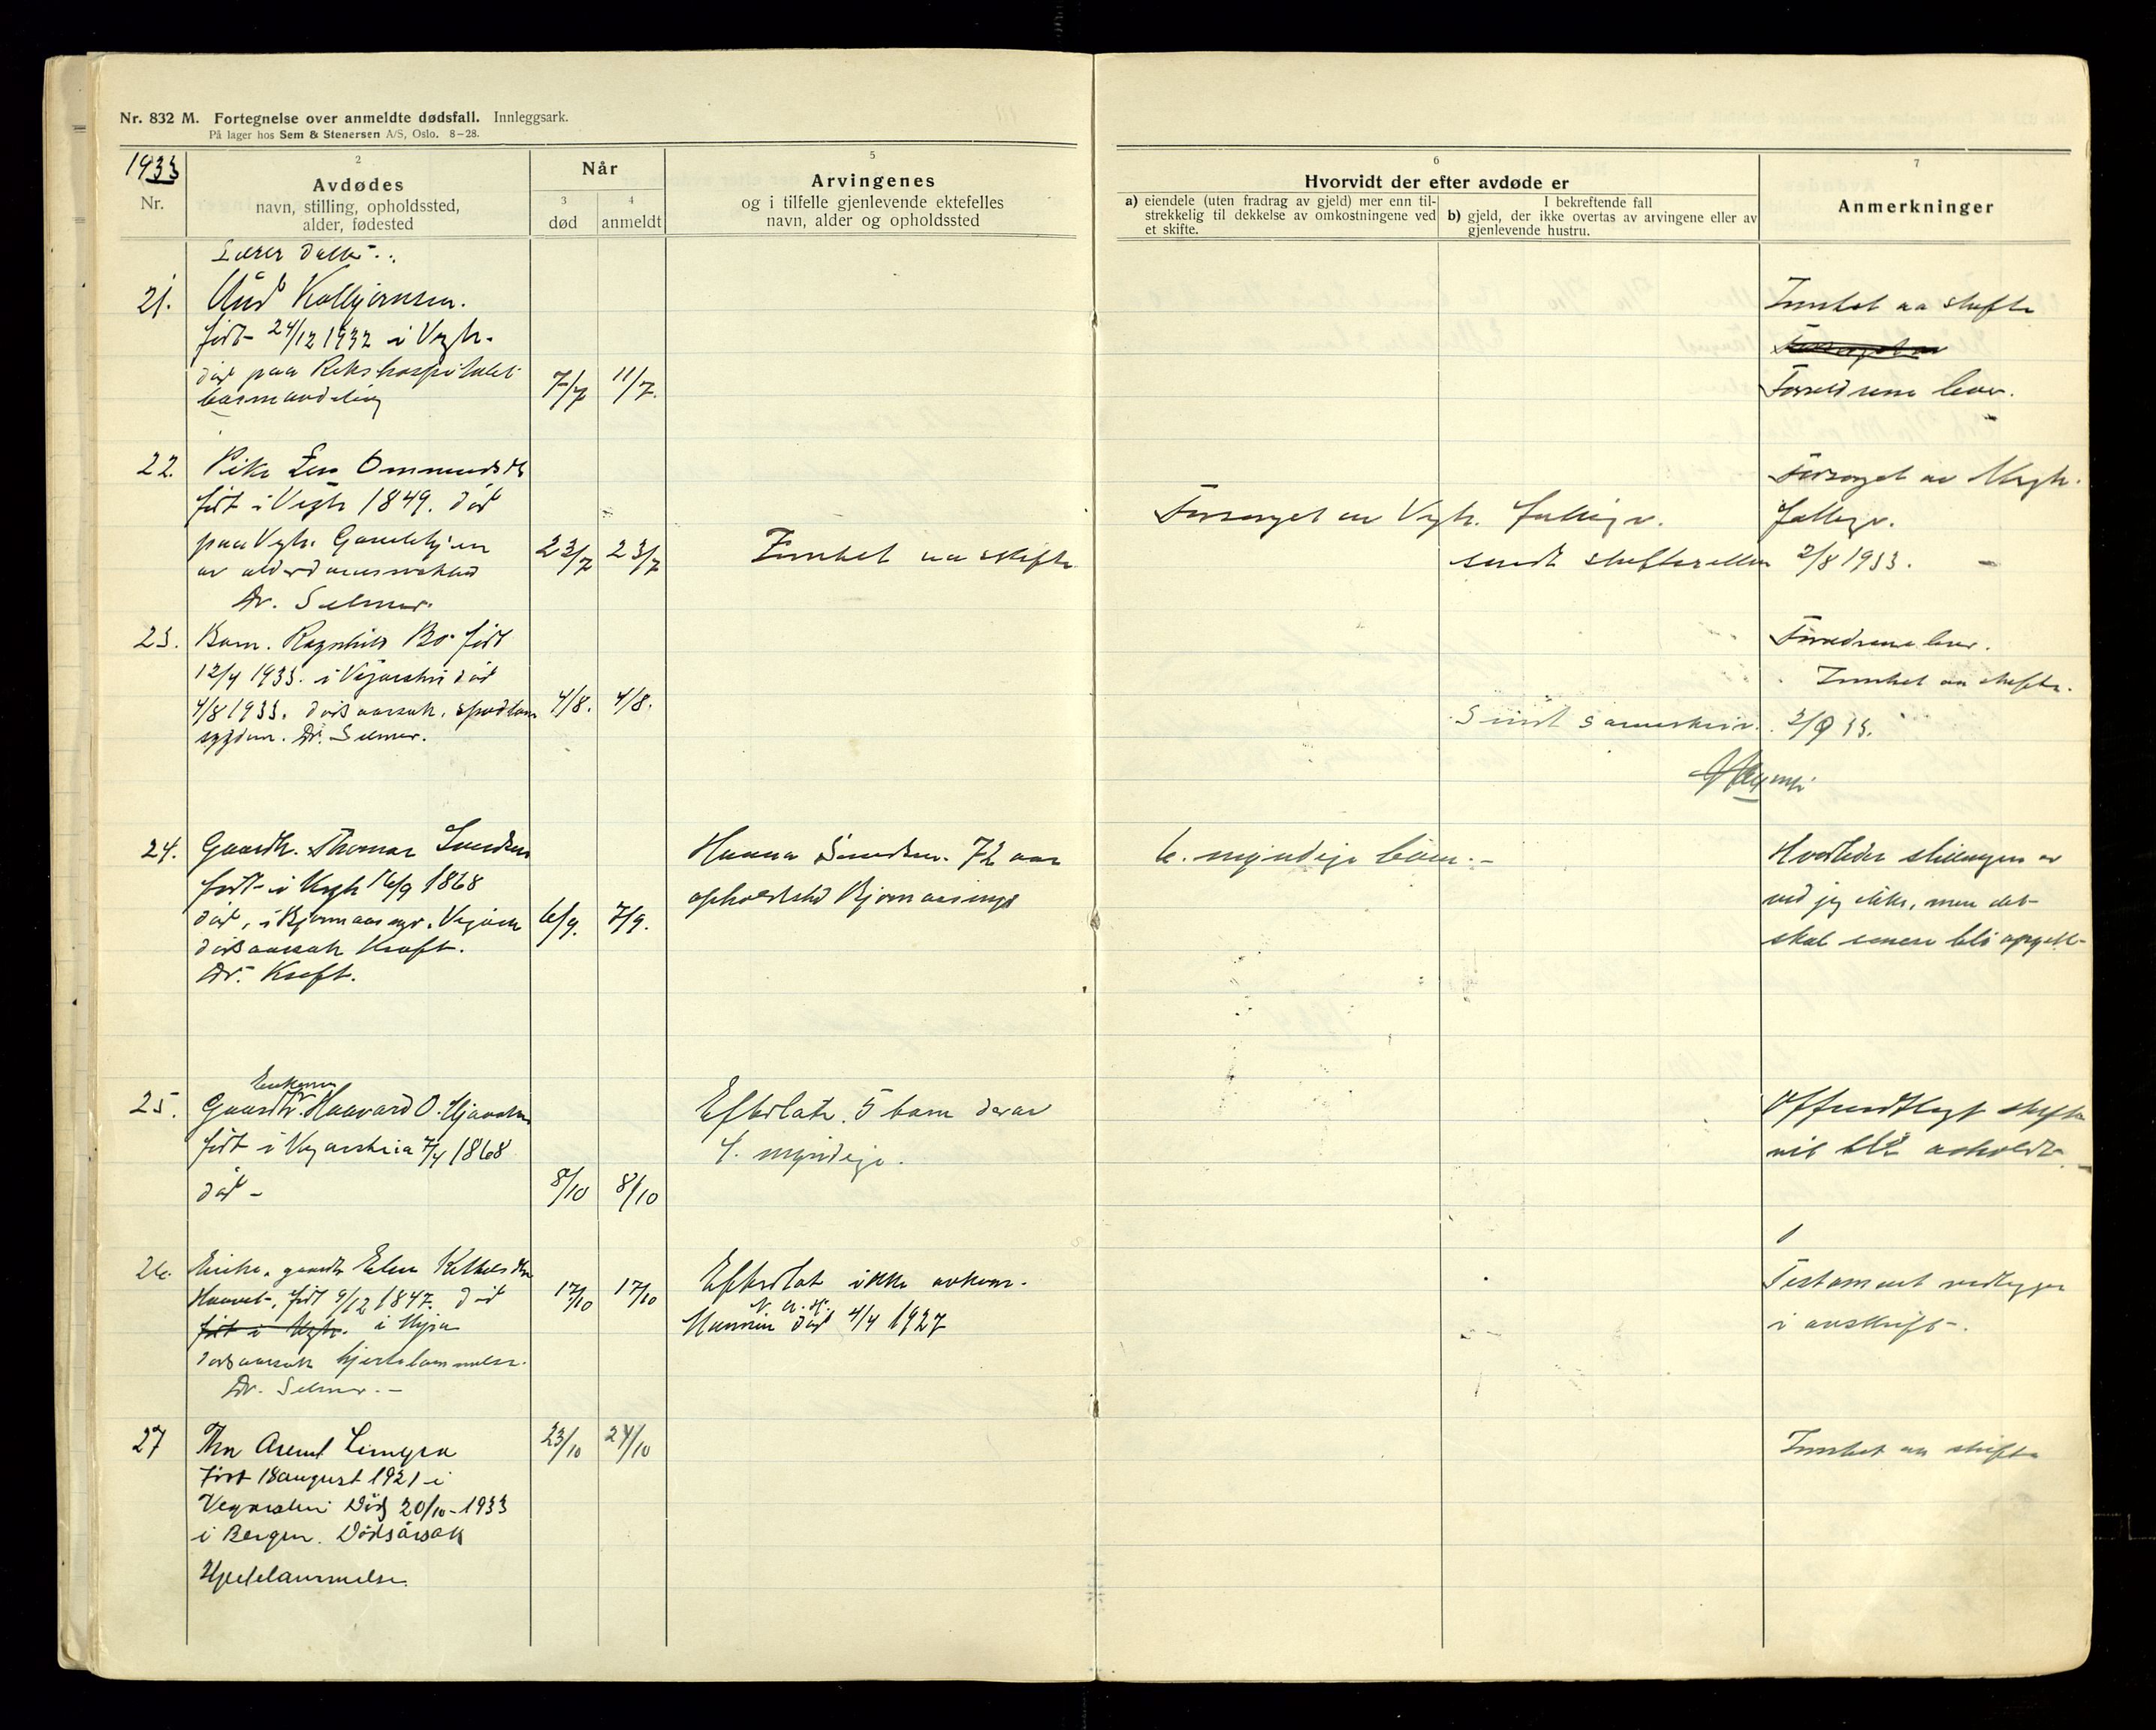 Nr. 832 M. Fortegnelse over anmeldte dødsfall. Innleggsark.
På lager hos Sem & Stenersen A/S, Oslo. 8–28.
1933
Nr.
2
Avdødes
navn, stilling, opholdssted,
alder, fødested
Når
3
død
4
anmeldt
5
Arvingenes
og i tilfelle gjenlevende ektefelles
navn, alder og opholdssted
6
Hvorvidt der efter avdøde er
a) eiendele (uten fradrag av gjeld) mer enn til-
strekkelig til dekkelse av omkostningene ved
et skifte.
I bekreftende fall
b) gjeld, der ikke overtas av arvingene eller av
gjenlevende hustru.
7
Anmerkninger
Lærer
21.
født 24/12 1932 i Vegh.
død paa Rikshospitalet
barneavdeling
7/7
11/7.
Intet aa skifte
Foreldrene lever.
22.
Pike
født i Vegh 1849. død
paa Vegh. Gamlehjem
av alderdomssvakhed
Dr. Selmer.
23/7
23/7
Intet aa skifte
Forsorget av Vegh. fattigv.
sendt skifteretten 2/8 1933.
Forsorget av Vegh.
fattigv.
23.
Barn. Ragnhild Bo født
12/4 1933. i Vegaarshei død
4/8 1933. dødsaarsak, spedbarn
sygdom. Dr. Selmer.
4/8.
4/8.
Foreldrene lever.
Intet aa skifte.
Sendt sorenskriv. 2/9 33.
24.
Gaardbr. Thomas
født i Vegh 16/9 1868
død, i
dødsaarsak Kreft.
Dr. Kreft.
6/9.
7/9.
Hanna 72 aar
opholdsted
6. myndige barn.-
Hvorledes stillingen er
ved jeg ikke, men det
skal senere bli opgitt
25.
Enkem.
Gaardbr. Haavard O.
født i Vegaarshei 7/4 1868
død -
8/10
8/10
Efterlater 5 barn derav
4. myndige.
Offentligt skifte
vil bli avholdt
26.
Enke. gaardb.
født 9/12 1847. død
født i Vegh. i Myra
dødsaarsak hjertelammelse.
Dr. Selmer.-
17/10
17/10
Efterlot ikke avkom.
Mannen død 4/4 1927
Testament vedlegges
i avskrift-.
27
født 18 august 1921 i
Vegårshei Død 20/10-1933
i Bergen. Dødsårsak
Hjertelammelse.
23/10
24/10
Intet aa skifte